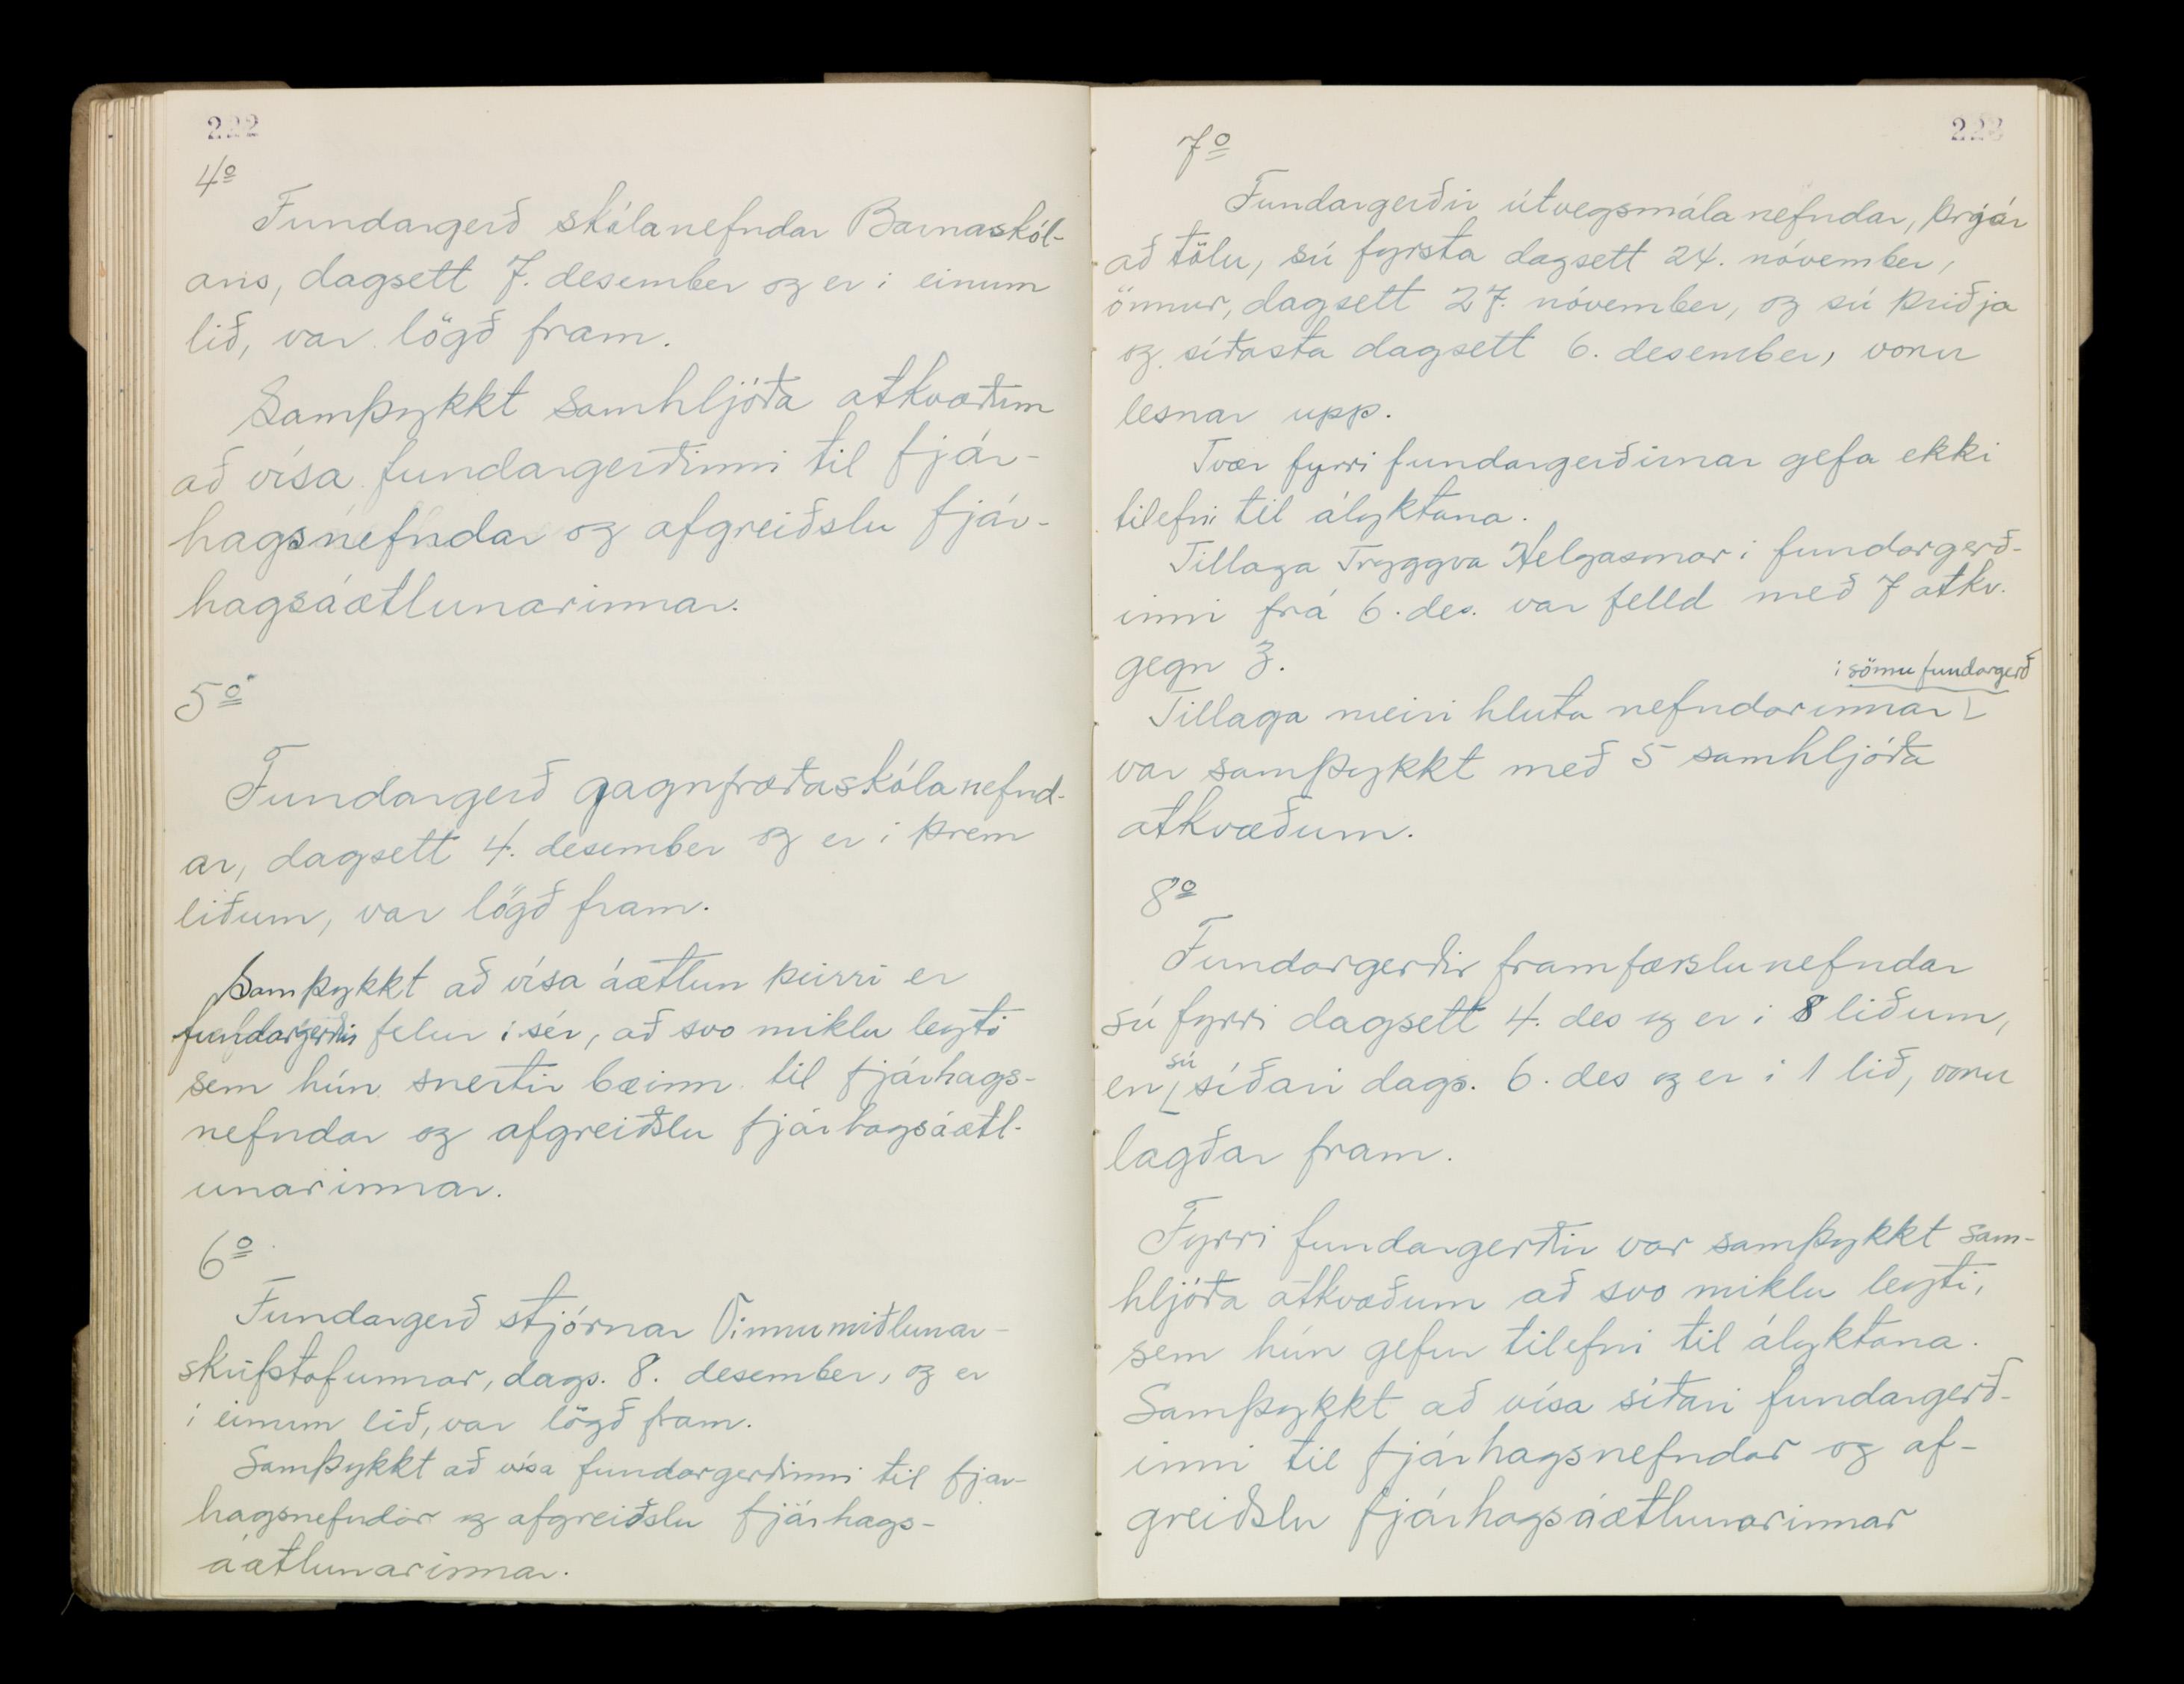 222
4º
Fundargerð skólanefndar Barnaskól-
ans, dagsett 7. desember og er í einum
lið, var lögð fram.
Samþykkt samhljóða atkvæðum
að vísa fundargerðinni til fjár-
hagsnefndar og afgreiðslu fjár-
hagsáætlunarinnar.
5º
Fundargerð gagnfræðaskólanefnd-
ar, dagsett 4. desember og er í þrem
liðum, var lögð fram.
Samþykkt að vísa áætlun þeirri er
fundargerðin felur í sér, að svo miklu leyti
sem hún snertir bæinn til fjárhags-
nefndar og afgreiðslu fjárhagsáætl-
unarinnar.
6º
Fundargerð stjórnar Vinnumiðlunar-
skrifstofunnar, dags. 8. desember, og er
í einum lið, var lögð fram.
Samþykkt að vísa fundargerðinni til fjár-
hagsnefndar og afgreiðslu fjárhags-
áætlunarinnar.
223
7º
Fundargerðir útvegsmálanefndar, þrjár
að tölu, sú fyrsta dagsett 24. nóvember,
önnur, dagsett 27. nóvember, og sú þriðja
og síðasta dagsett 6. desember, voru
lesnar upp.
Tvær fyrri fundargerðirnar gefa ekki
tilefni til ályktana.
Tillaga Tryggva Helgasonar í fundargerð-
inni frá 6. des. var felld með 7 atkv.
gegn 3.
í sömu fundargerð
Tillaga meiri hluta nefndarinnar
var samþykkt með 5 samhljóða
atkvæðum.
8º
Fundargerðir framfærslunefndar
sú fyrri dagsett 4. des og er í 8 liðum,
en sú síðari dags. 6. des og er í 1 lið, voru
lagðar fram.
Fyrri fundargerðin var samþykkt sam-
hljóða atkvæðum að svo miklu leyti,
sem hún gefur tilefni til ályktana.
Samþykkt að vísa síðari fundargerð-
inni til fjárhagsnefndar og af-
greiðslu fjárhagsáætlunarinnar